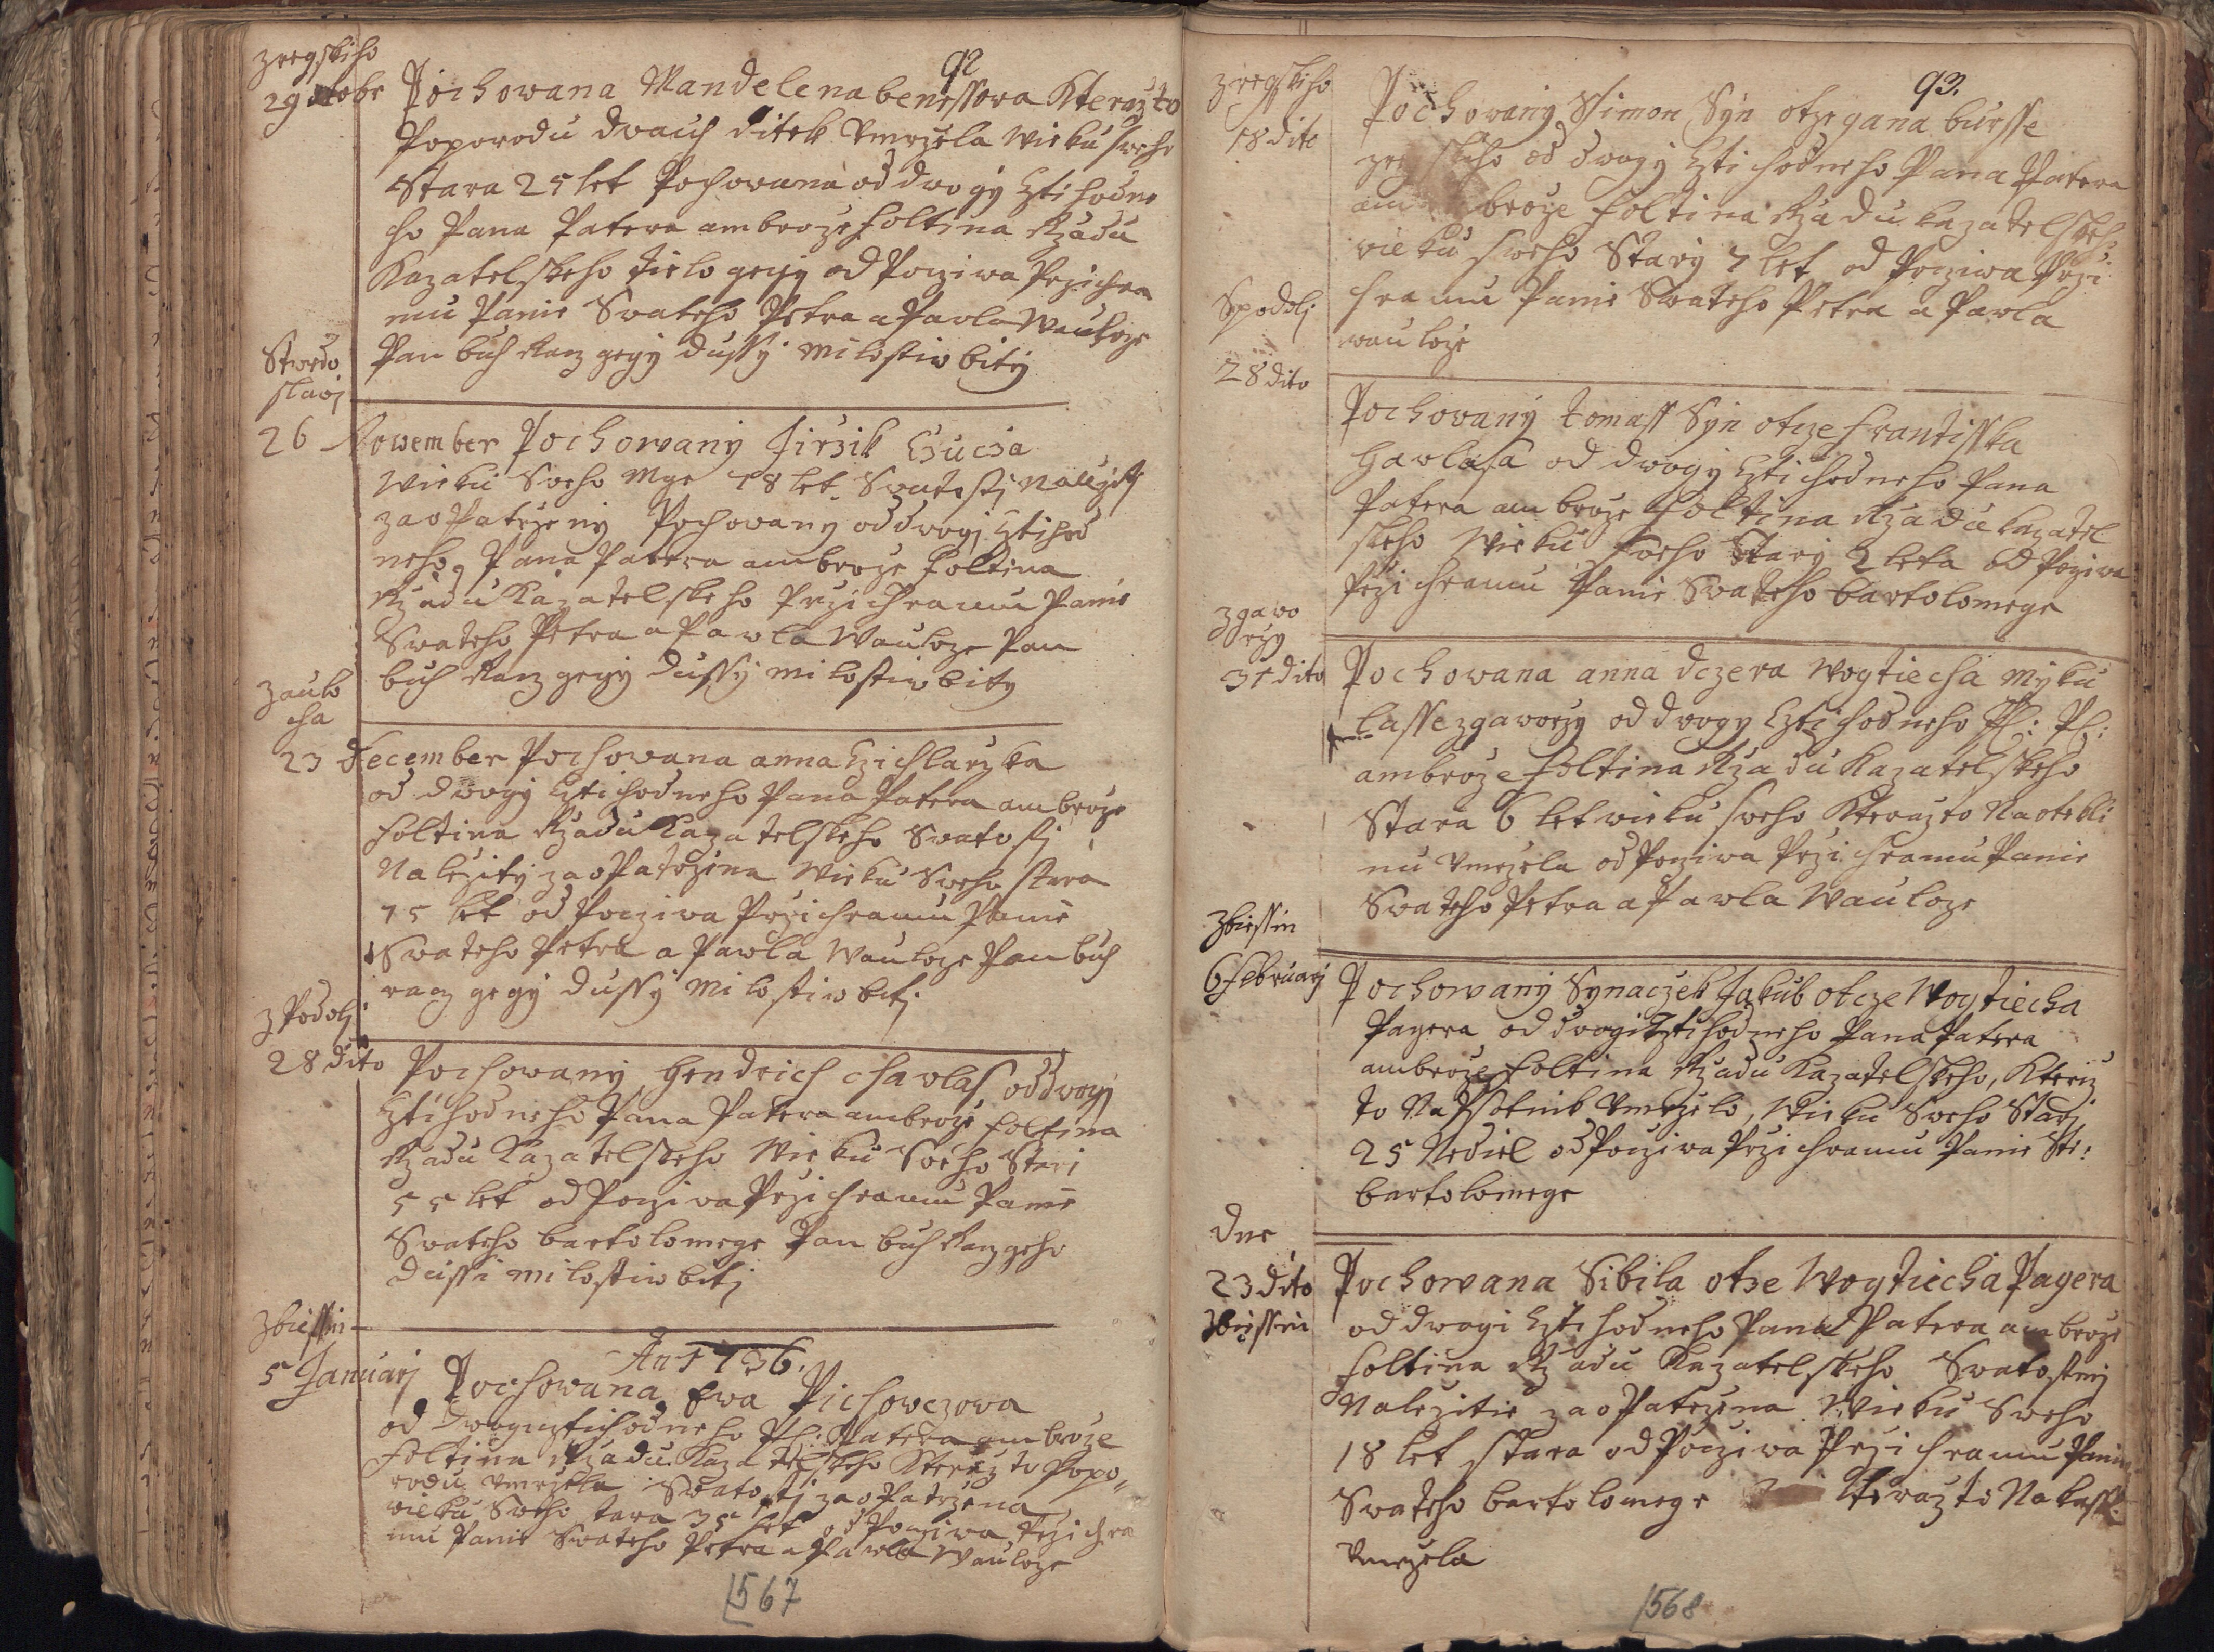 92
zregskiho
29 octobr Pochowana Mandelena benessowa Kterazto
Poporodu dwauch ditek Vmrzela Wieku sweho
Stara 25 let Pochowana od dwogy Cztihodne
ho Pana Patera ambroze foltina Rzadu
Kazatelskeho tielo gegy odPocziwa Przichra
mu Panie Swateho Petra a Pawla Wauloze
Pan buh Racz gegy dussy milostiw bity
Stwrdo
slawi
26 Nowember Pochowany Jirzik
Wieku Sweho Mge 18 let Swatosti Nalezitj
zaoPatrzeny Pochowany od dwogi Cztihod
neho Pana Patera ambroze foltina
Rzadu Kazatelskeho Przichramu Panie
Swateho Petra a Pawla Wauloze Pan
buh Racz gegy dussy milostiw bity
zaulo
cha
23 December Pochowana anna Czichlarzka
od dwogy Cztihodneho Pana Patera ambroze
foltina Rzadu Kazatelskeho Swatosti
Nalezity zaoPatrzena Wieku Sweho stara
75 let odPocziwa Przichramu Panie
Swateho Petra a Pawla Wauloze Pan buh
racz gegy dussy milostiw biti
zPodoli
28 dito Pochowany Hendrich chawlas od dwogi
Cztihodneho Pana Patera ambroze foltina
Rzadu Kazatelskeho Wieku Sweho Stari
55 let odPocziwa Przichramu Panie
Swateho bartolomege Pan buh Racz geho
dussi milostiw biti
zbiessin
An 1736.
5 Januarj Pochowana Ewa Pichowczowa
od dwogi cztihodneho Ph: Patera ambroze
foltina Rzadu Kazatelskeho Kterazto Popo
rodu Vmrzela Swatosti zaoPatrzena
wieku Sweho stara 35 let odPocziwa Przichra
mu Panie Swateho Petra a Pawla Wauloze
1567
93.
zregskiho
18 dito Pochowany Ssimon Syn otze gana buresse
zregskiho od dwogy Cztihodneho Pana Patera
ambroze foltina Rzadu kazatelskeh:
wieku sweho Stary 7 let odPocziwa Przi
chramu Panie Swateho Petra a Pawla
wauloze
Spodoli
28 dito Pochowany tomass Syn otcze frantisska
Hawlasa od dwogy Cztihodneho Pana
Patera ambroze foltina Rzadu kazatel
skeho Wieku sweho Stary 2 leta odPocziwa
Przichramu Panie Swateho bartolomege
zgawo
rzy
31 dito Pochowana anna dczera Wogtiecha Myku
lasse zgaworzy od dwogy Cztihodneho Ph: Ph:
ambroze foltina Rzadu Kazatelskeho
Stara 6 let wieku sweho Kterazto Naotekli
nu Vmrzela odPocziwa Przichramu Panie
Swateho Petra a Pawla Wauloze
zbiessin
6 februarj Pochowany Synaczek Jakub otcze Wogtiecha
Pagera od dwogi Cztihodneho Pana Patera
ambroze foltina Rzadu Kazatelskeho, Kteriz
to NaPsotnik Vmrzelo, Wieku Sweho Stari
25 Nediel odPocziwa Przichramu Panie Ste:
bartolomege
dne
23 dito Pochowana Sibila otze Wogtiecha Pagera
zbiessin od dwogi Cztihodneho Pana Patera ambroze
foltina Rzadu Kazatelskeho Swatostmj
Nalezitie zaoPatrzena Wieku Sweho
18 let stara odPocziwa Przichramu Panie
Swateho bartolomege Kterazto Nakassl:
Vmrzela
1568